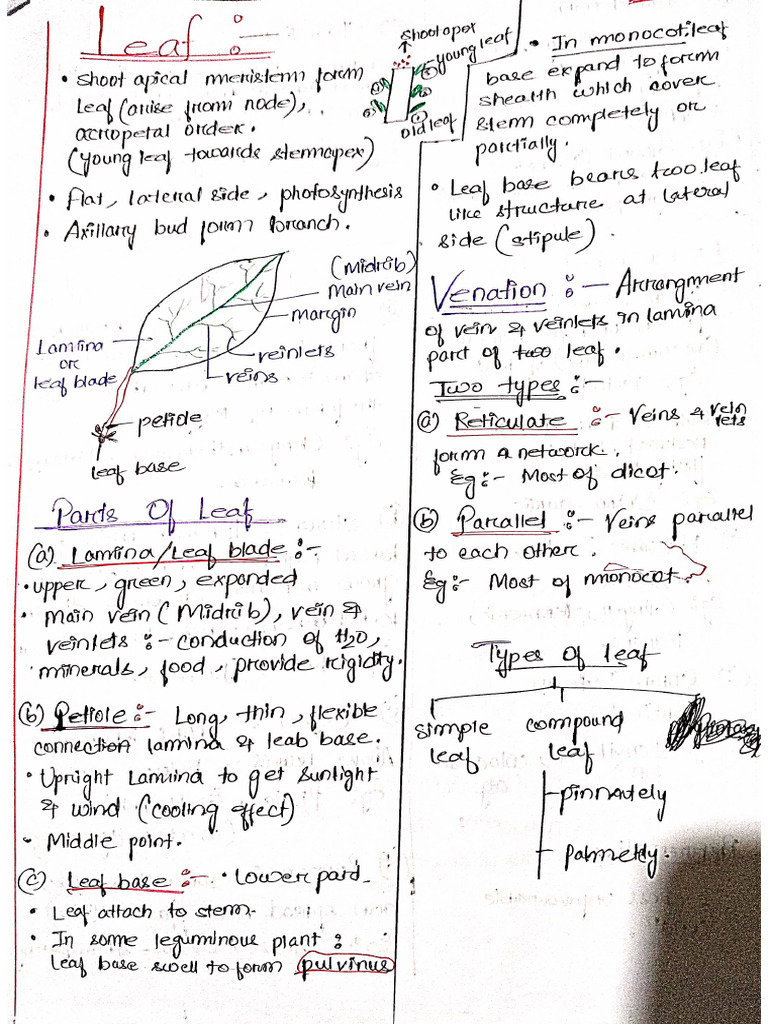 Leaf :
• Shoot apical meristem form
leaf (arise from node),
acropetal order.
(young leaf towards stemapex)
• flat, lateral side, photosynthesis
• Axillary bud form branch.
shoot apex
young leaf
old leaf
(Midrib)
main vein
margin
veinlets
veins
Lamina
or
leaf blade
petiole
leaf base
Parts Of Leaf
(a) Lamina/Leaf blade :-
• upper, green, expanded
• main vein (Midrib), vein &
veinlets :- conduction of H2O,
minerals, food, provide rigidity.
(b) Petiole :- Long, thin, flexible
connection lamina & leab base.
• Upright Lamina to get sunlight
& wind (cooling effect)
- Middle point.
(c) Leaf base :- • Lower part
• Leaf attach to stem
• In some leguminous plant :
leaf base swell to form pulvinus
• In monocot, leaf
base expand to form
sheath which cover
stem completely or
partially.
• Leaf base bears two leaf
like structure at lateral
side (stipule).
Venation :- Arrangment
of vein & veinlets in lamina
part of two leaf.
Two types :-
(a) Reticulate :- Veins & vein
lets
form a network.
Eg :- Most of dicot.
(b) Parallel :- Veins parallel
to each other.
Eg :- Most of monocot.
Types of leaf
simple
leaf
compound
leaf
- pinnately
- palmetly.